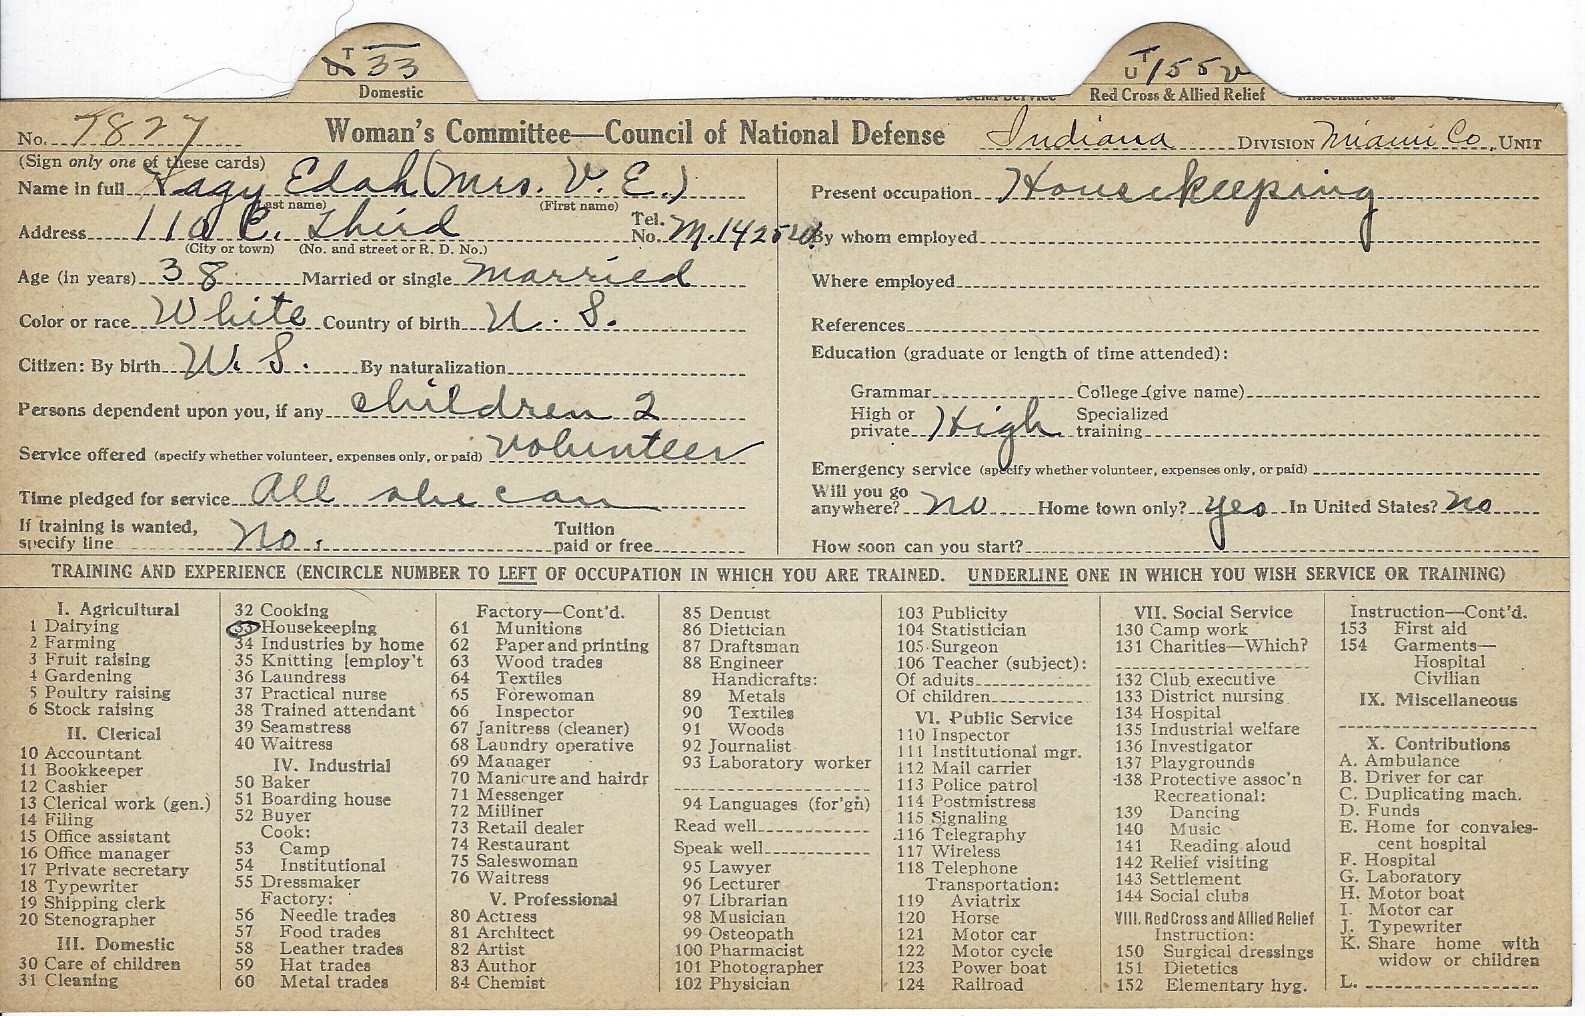 T U 33
Domestic
T U 155 v
Red Cross & Allied Relief
No. 7827 Woman's Committee—Council of National Defense Indiana DIVISION Miami Co. UNIT
(Sign only one of these cards)
Name in full Edah (Mrs. V. E.)
(Last name) (First name)
Address 110 E. Third Tel. No. M. 1425
(City or town) (No. and street or R. D. No.)
Age (in years) 38 Married or single Married
Color or race White Country of birth U. S.
Citizen: By birth U. S. By naturalization
Persons dependent upon you, if any children 2
Service offered (specify whether volunteer, expenses only, or paid) Volunteer
Time pledged for service All she can
If training is wanted, specify line No. Tuition paid or free
Present occupation Housekeeping
By whom employed
Where employed
References
Education (graduate or length of time attended):
Grammar College (give name)
High or private High Specialized training
Emergency service (specify whether volunteer, expenses only, or paid)
Will you go anywhere? No Home town only? Yes In United States? No
How soon can you start?
TRAINING AND EXPERIENCE (ENCIRCLE NUMBER TO LEFT OF OCCUPATION IN WHICH YOU ARE TRAINED. UNDERLINE ONE IN WHICH YOU WISH SERVICE OR TRAINING)
I. Agricultural
1 Dairying
2 Farming
3 Fruit raising
4 Gardening
5 Poultry raising
6 Stock raising
II. Clerical
10 Accountant
11 Bookkeeper
12 Cashier
13 Clerical work (gen.)
14 Filing
15 Office assistant
16 Office manager
17 Private secretary
18 Typewriter
19 Shipping clerk
20 Stenographer
III. Domestic
30 Care of children
31 Cleaning
32 Cooking
33 Housekeeping
34 Industries by home
35 Knitting [employ't
36 Laundress
37 Practical nurse
38 Trained attendant
39 Seamstress
40 Waitress
IV. Industrial
50 Baker
51 Boarding house
52 Buyer
Cook:
53 Camp
54 Institutional
55 Dressmaker
Factory:
56 Needle trades
57 Food trades
58 Leather trades
59 Hat trades
60 Metal trades
Factory—Cont'd.
61 Munitions
62 Paper and printing
63 Wood trades
64 Textiles
65 Forewoman
66 Inspector
67 Janitress (cleaner)
68 Laundry operative
69 Manager
70 Manicure and hairdr
71 Messenger
72 Milliner
73 Retail dealer
74 Restaurant
75 Saleswoman
76 Waitress
V. Professional
80 Actress
81 Architect
82 Artist
83 Author
84 Chemist
85 Dentist
86 Dietician
87 Draftsman
88 Engineer
Handicrafts:
89 Metals
90 Textiles
91 Woods
92 Journalist
93 Laboratory worker
94 Languages (for'gn)
Read well
Speak well
95 Lawyer
96 Lecturer
97 Librarian
98 Musician
99 Osteopath
100 Pharmacist
101 Photographer
102 Physician
103 Publicity
104 Statistician
105 Surgeon
106 Teacher (subject):
Of adults
Of children
VI. Public Service
110 Inspector
111 Institutional mgr.
112 Mail carrier
113 Police patrol
114 Postmistress
115 Signaling
116 Telegraphy
117 Wireless
118 Telephone
Transportation:
119 Aviatrix
120 Horse
121 Motor car
122 Motor cycle
123 Power boat
124 Railroad
VII. Social Service
130 Camp work
131 Charities—Which?
132 Club executive
133 District nursing
134 Hospital
135 Industrial welfare
136 Investigator
137 Playgrounds
138 Protective assoc'n
Recreational:
139 Dancing
140 Music
141 Reading aloud
142 Relief visiting
143 Settlement
144 Social clubs
VIII. Red Cross and Allied Relief
Instruction:
150 Surgical dressings
151 Dietetics
152 Elementary hyg.
Instruction—Cont'd.
153 First aid
154 Garments—
Hospital
Civilian
IX. Miscellaneous
X. Contributions
A. Ambulance
B. Driver for car
C. Duplicating mach.
D. Funds
E. Home for convales-
cent hospital
F. Hospital
G. Laboratory
H. Motor boat
I. Motor car
J. Typewriter
K. Share home with
widow or children
L.